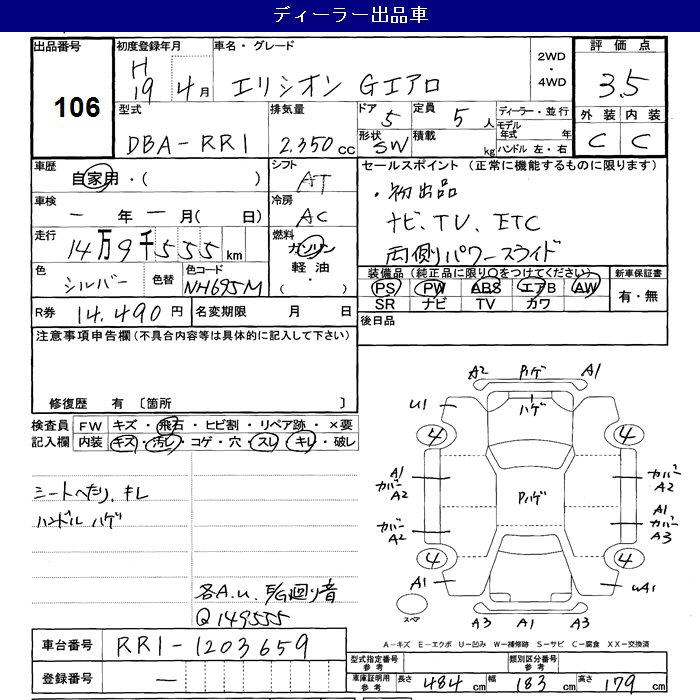 ディーラー出品車
出品番号 106
初度登録年月 H19 4月
車名・グレード エリシオン Gエアロ
2WD・4WD
評価点 3.5
型式 DBA-RR1
排気量 2.350cc
ドア 5 形状 SW
定員 5人 積載 kg
ディーラー・並行
モデル年式 年
ハンドル 左・右
外装 C 内装 C
車歴 自家用・( )
シフト AT
セールスポイント (正常に機能するものに限ります)
・初出品
ナビ、TV、ETC
両側パワースライド
車検 ー年ー月( 日)
冷房 AC
走行 14万9千555km
燃料 ガソリン 軽油・( )
色 シルバー 色替 色コード NH695M
装備品(純正品に限り○をつけてください)
PS PW ABS エアB AW
SR ナビ TV カワ
新車保証書 有・無
R券 14,490円 名変期限 月 日
後日品
注意事項申告欄(不具合内容等は具体的に記入して下さい)
修復歴 有 〔箇所 〕
検査員記入欄
FW キズ・飛石・ヒビ割・リペア跡・×要
内装 キズ・汚レ・コゲ・穴・スレ・キレ・破レ
シートへたり、キレ
ハンドル ハゲ
各A.u. E/G廻り音
Q149555
A2 Pハゲ A1
ハゲ
U1
4 4
A1 カバー A2
Pハゲ
カバー A2
カバー A2
A1 カバー A3
4 4
A1 uA1
スペア
A3 A1 A3
車台番号 RR1-1203659
A-キズ E-エクボ U-凹み W-補修跡 S-サビ C-腐食 XX-交換済
登録番号 ー
型式指定番号 参考
類別区分番号 参考
車庫証明用 参考 長さ 484cm 幅 183cm 高さ 179cm